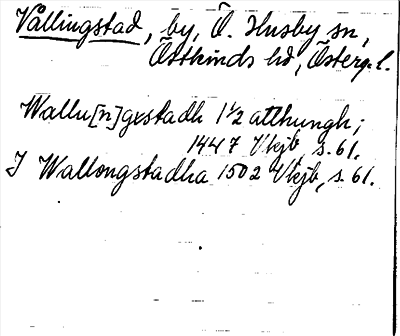 Vållingstad, by, Ö. Husby sn,
Östkinds hd, Österg. l.
Wallu[n]gxstadh 1 1/2 atthungh;
1447 Vkjb, s. 61.
I Wallongstadha 1502 Vkjb, s. 61.